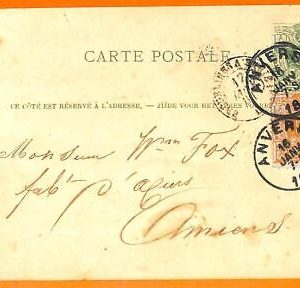 CARTE POSTALE
CE CÔTÉ EST RÉSERVÉ À L'ADRESSE. — ZIJDE VOOR HET ADRES
ANVERS
16
JANV
1
ANVERS
16
JANV
1
Monsieur Wm Fox
fabt d'aciers
Amiens